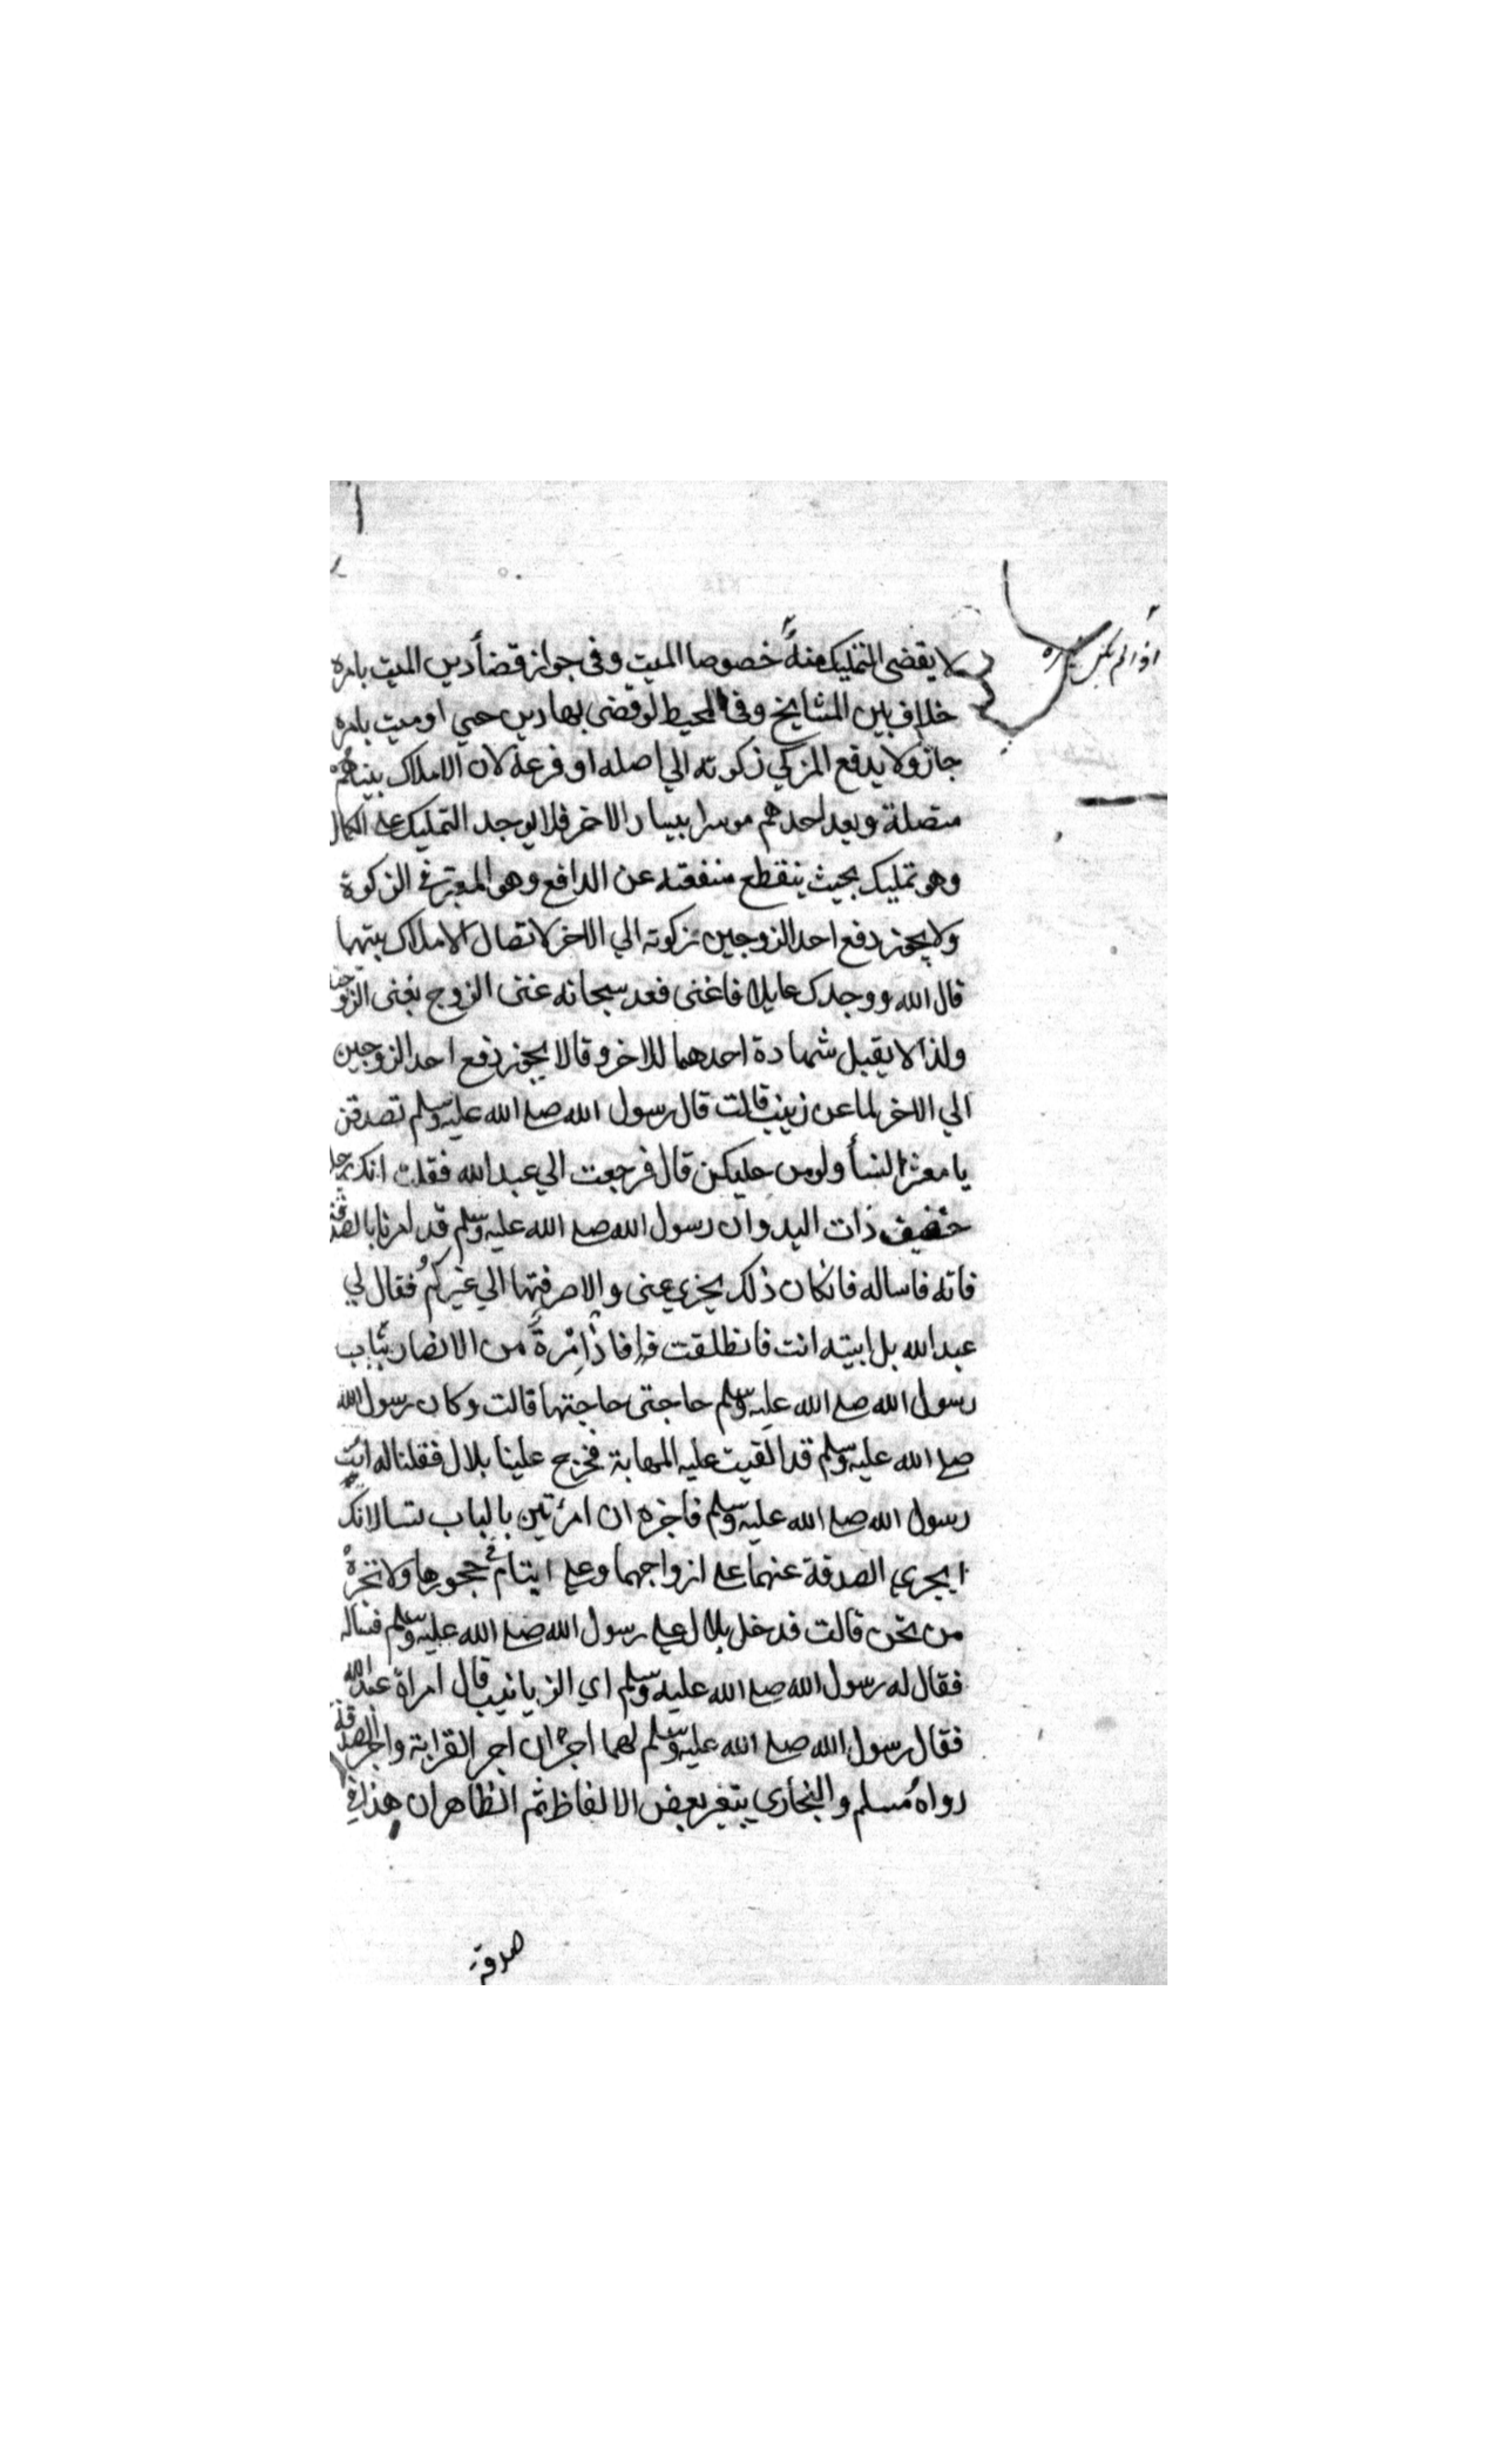 لا يقضى التمليك منه خصوصا الميت وفى جواز قضأ دين الميت بامره
خلاف بين المشايخ وفى المحيط لو قضى بها دين حي او ميت بامره
جاز ولا يدفع المزكي زكوته الي اصله او فرعه لان الاملاك بينهم
متصلة ويعد احدهم موسرا بيسار الاخر فلا يوجد التمليك علي الكمال
وهو تمليك بحيث ينقطع منفعته عن الدافع وهو المعتبر في الزكوة
ولا يجوز دفع احد الزوجين زكوته الي الاخر لاتصال الاملاك بينهما
قال الله ووجدك عايلا فاغنى فعد سبحانه غنى الزوج بغنى الزوجة
ولذا لا يقبل شهادة احدهما للاخر وقالا يجوز دفع احد الزوجين
الي الاخر لما عن زينب قالت قال رسول الله صلي الله عليه وسلم تصدقن
يا معشر النسأ ولو من حليكن قال فرجعت الي عبد الله فقلت انك رجل
خفيف ذات اليد وان رسول الله صلي الله عليه وسلم قد امرنا بالصدقة
فاته فاساله فانكان ذلك يجزي عنى والا صرفتها الي غيركم فقال لي
عبد الله بل ايتيه انت فانطلقت فاذا امرة من الانصار بباب
رسول الله صلي الله عليه وسلم حاجتى حاجتها قالت وكان رسول الله
صلي الله عليه وسلم قد القيت عليه المهابة فخرج علينا بلال فقلنا له ائت
رسول الله صلي الله عليه وسلم فاخبره ان امرئتين بالباب تسالانك
ايجزي الصدقة عنهما علي ازواجهما وعلي ايتام في حجورها ولا تخبره
من نحن قالت فدخل بلال علي رسول الله صلي الله عليه وسلم فساله
فقال له رسول الله صلي الله عليه وسلم اي الزيانيب قال امراة عبد الله
فقال رسول الله صلي الله عليه وسلم لهما اجران اجر القرابة واجر الصدقة
رواه مسلم والبخاري بتغير بعض الالفاظ ثم الظاهر ان هذا في
صدقة